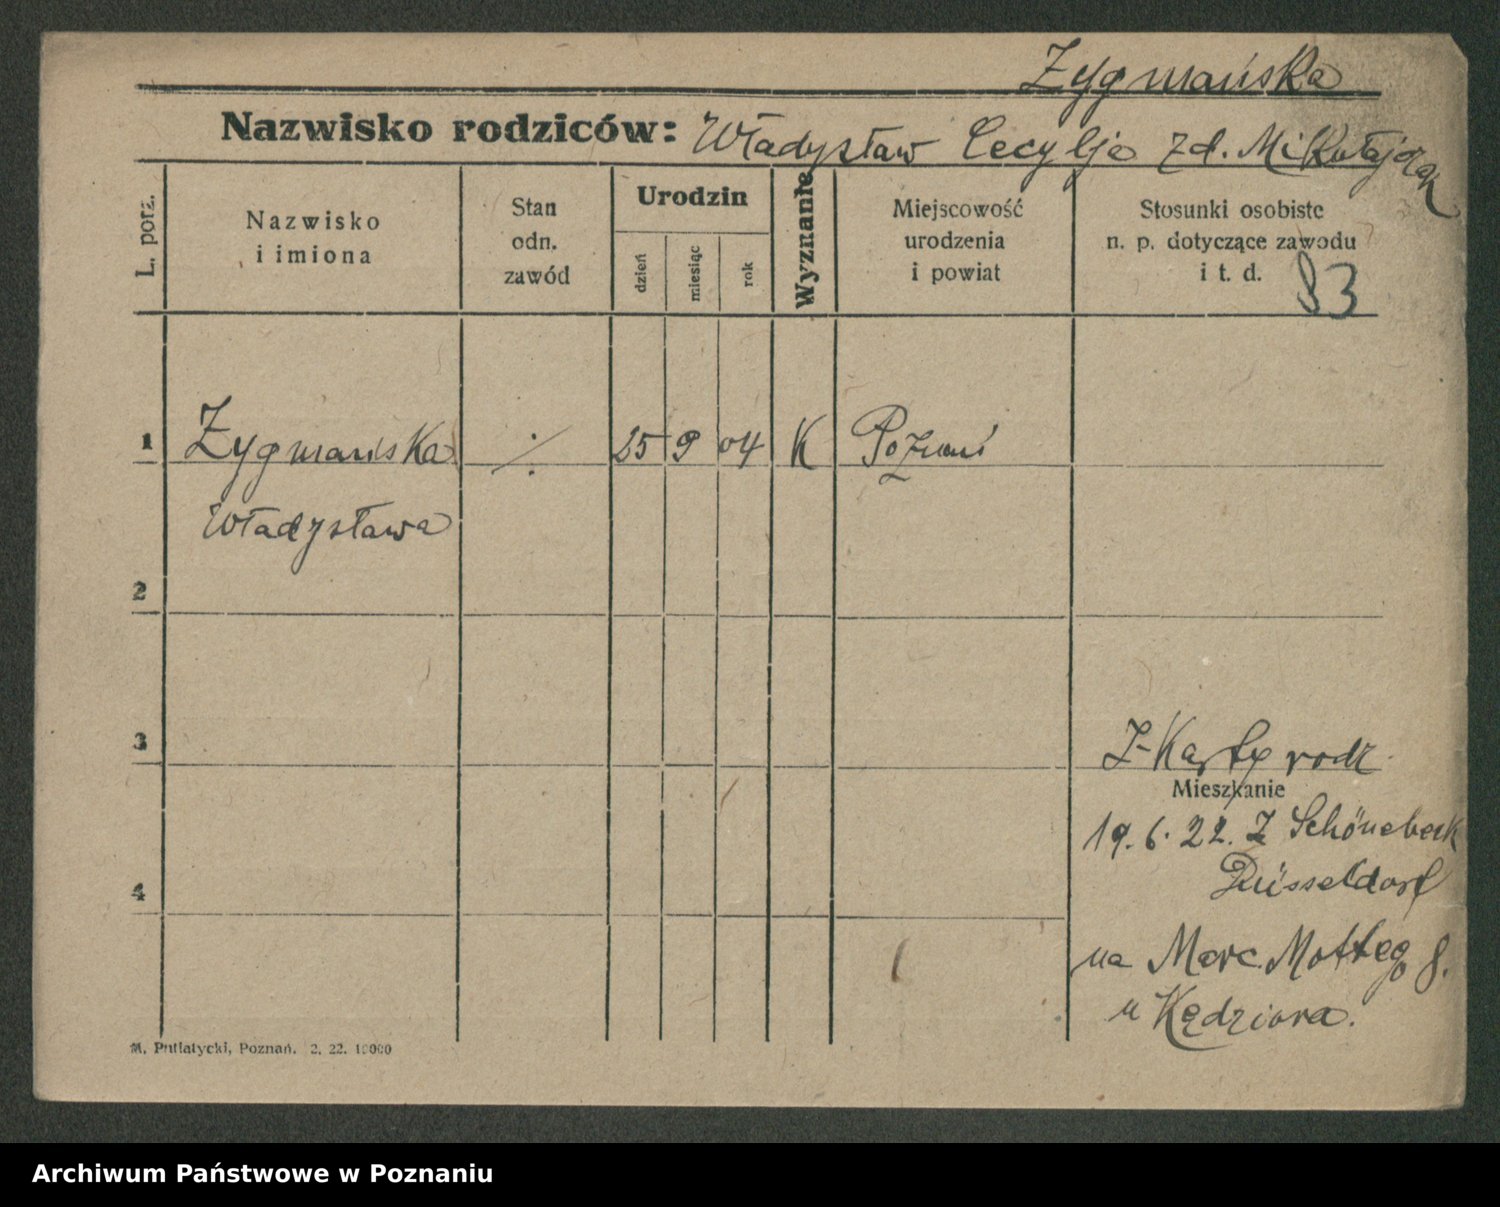 Zygmańska
Nazwisko rodziców: Władysław Cecylja zd. Mikołajczak
L. porz.
Nazwisko
i imiona
Stan
odn.
zawód
Urodzin
dzień
miesiąc
rok
Wyznanie
Miejscowość
urodzenia
i powiat
Stosunki osobiste
n. p. dotyczące zawodu
i t. d.
83
1 Zygmańska ./. 25 9 04 K Poznań
Władysława
2
3
Z-Karty rodz.
Mieszkanie
19. 6. 22. Z Schönebeck
Düsseldorf
4
na Marc. Mottego 8.
u Kędziora.
M. Putiatycki, Poznań. 2. 22. 10000
Archiwum Państwowe w Poznaniu